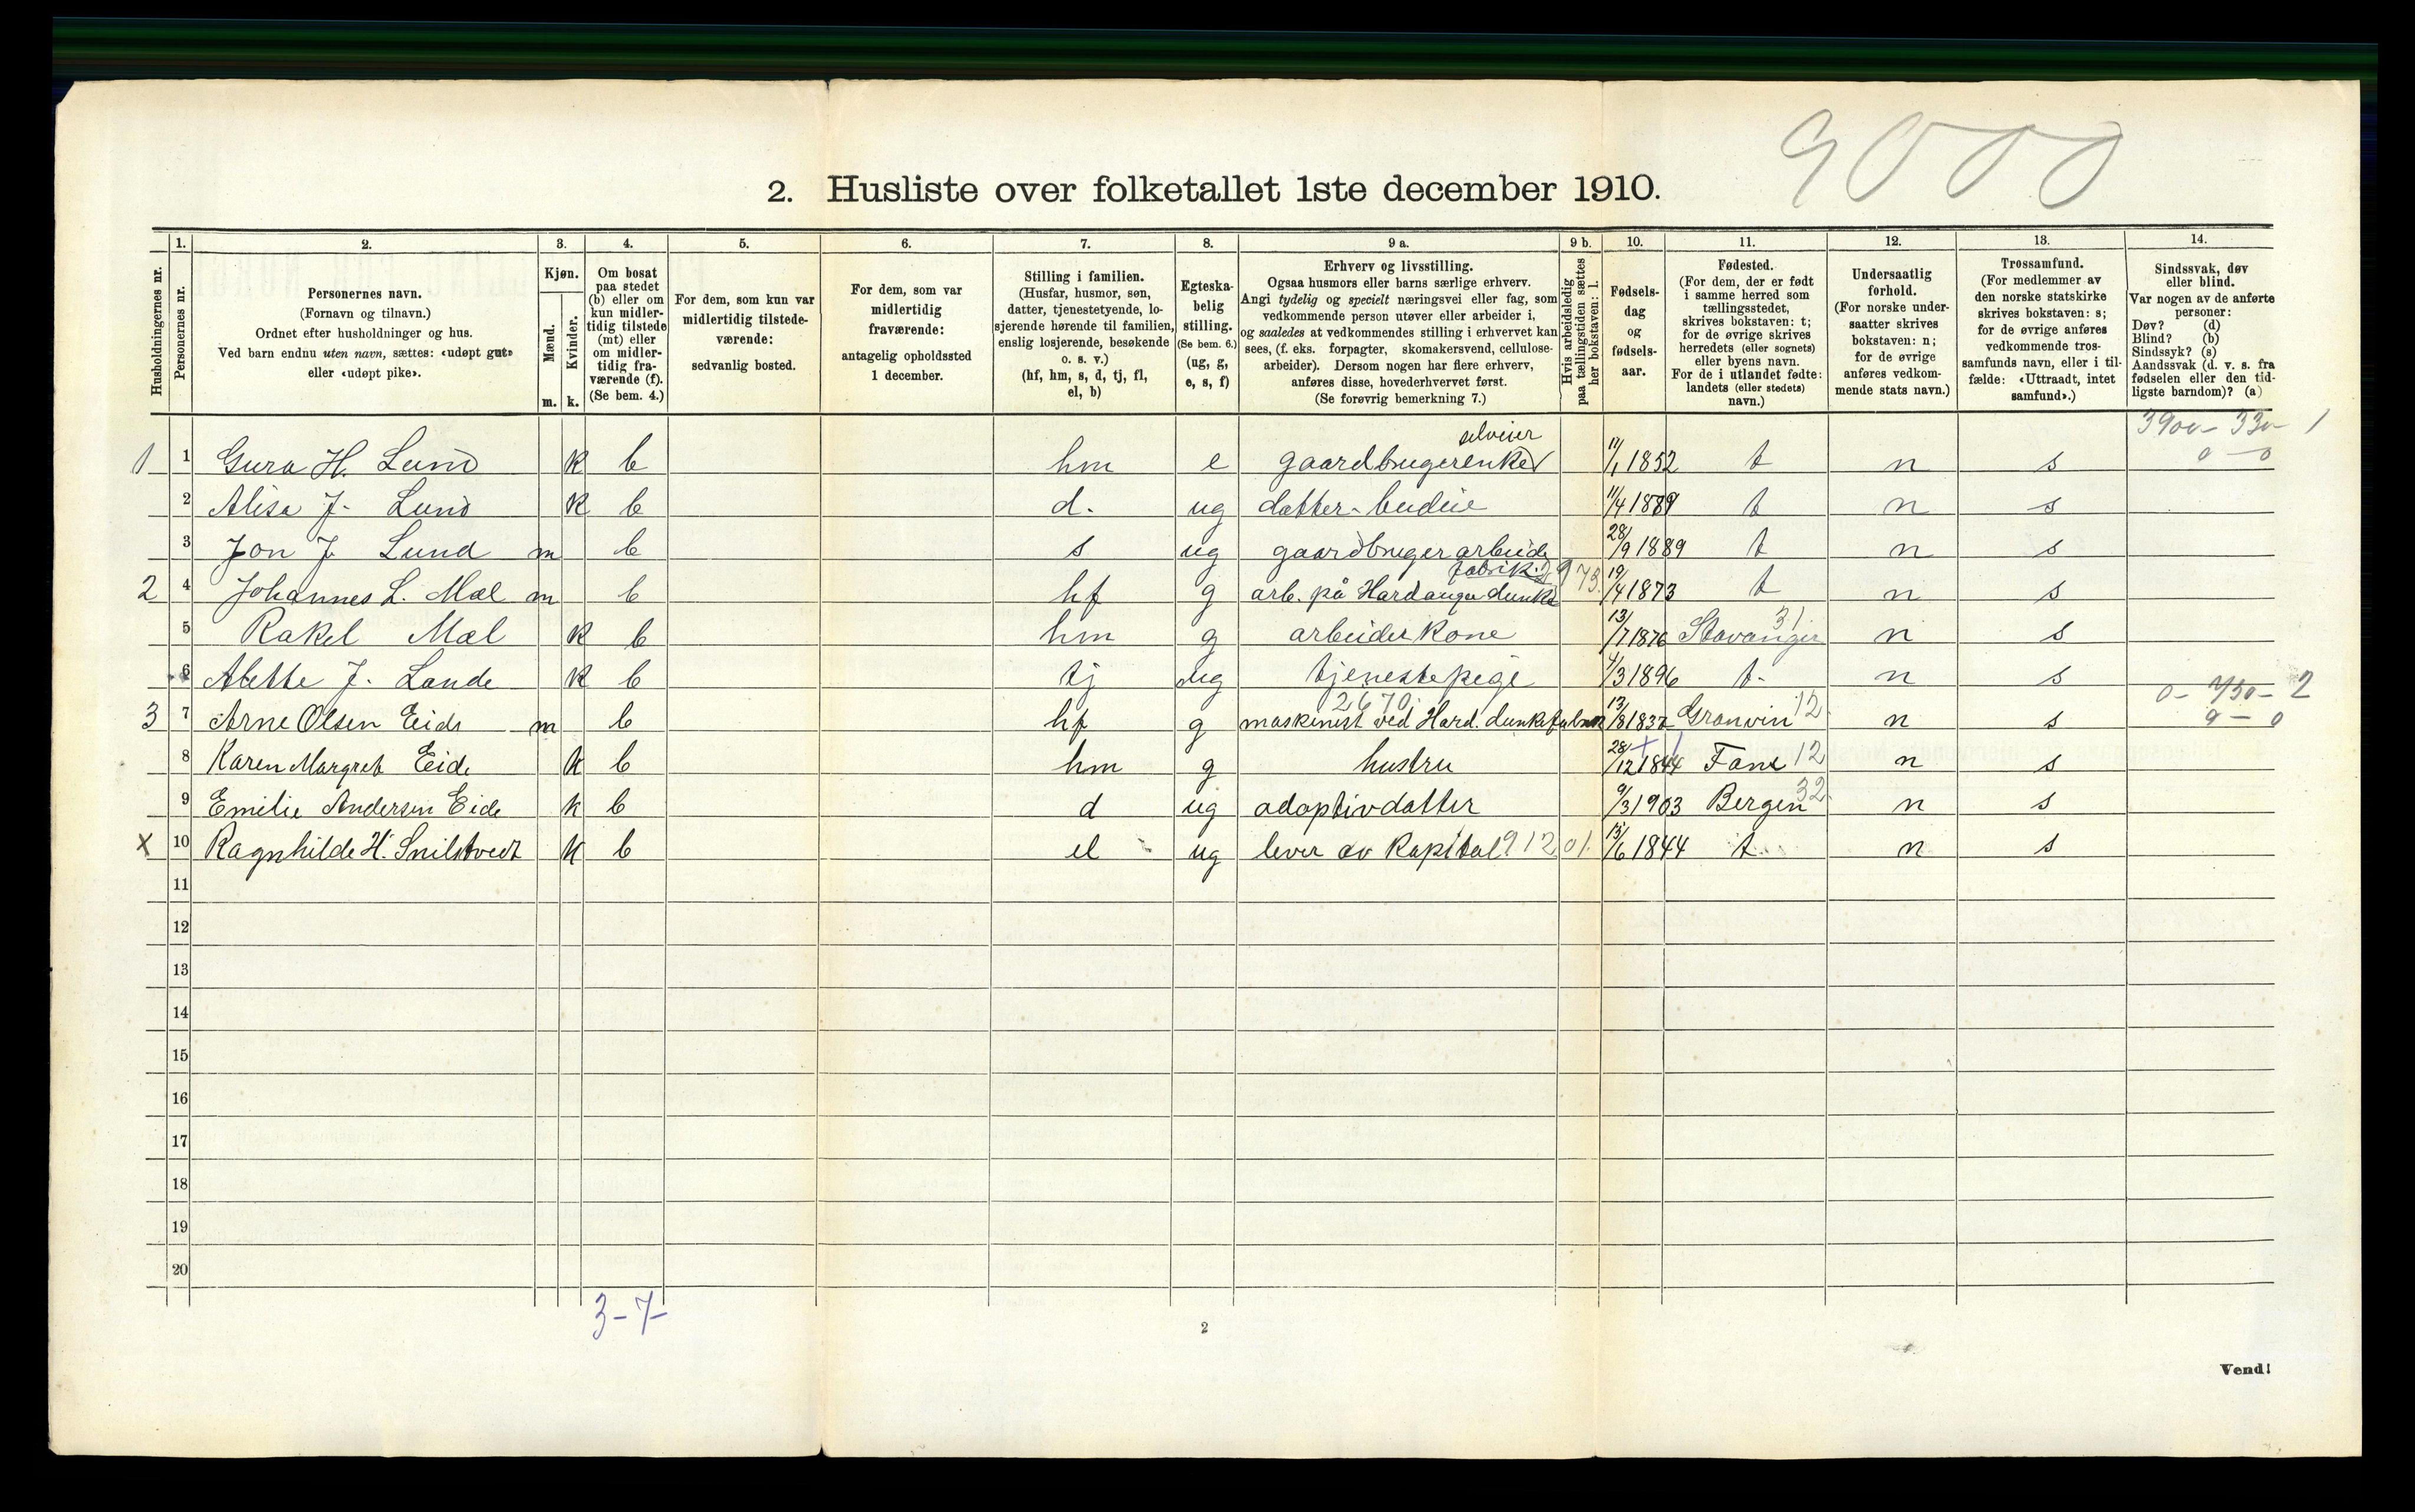 9000
2. Husliste over folketallet 1ste december 1910.
Husholdningernes nr.
1. Personernes nr.
2. Personernes navn. (Fornavn og tilnavn.) Ordnet efter husholdninger og hus. Ved barn endnu uten navn, sættes: «udøpt gut» eller «udøpt pike».
3. Kjøn. Mænd. m. Kvinder. k.
4. Om bosat paa stedet (b) eller om kun midlertidig tilstede (mt) eller om midlertidig fraværende (f). (Se bem. 4.)
5. For dem, som kun var midlertidig tilstedeværende: sedvanlig bosted.
6. For dem, som var midlertidig fraværende: antagelig opholdssted 1 december.
7. Stilling i familien. (Husfar, husmor, søn, datter, tjenestetyende, losjerende hørende til familien, enslig losjerende, besøkende o. s. v.) (hf, hm, s, d, tj, fl, el, b)
8. Egteskabelig stilling. (Se bem. 6.) (ug, g, e, s, f)
9 a. Erhverv og livsstilling. Ogsaa husmors eller barns særlige erhverv. Angi tydelig og specielt næringsvei eller fag, som vedkommende person utøver eller arbeider i, og saaledes at vedkommendes stilling i erhvervet kan sees, (f. eks. forpagter, skomakersvend, cellulosearbeider). Dersom nogen har flere erhverv, anføres disse, hovederhvervet først. (Se forøvrig bemerkning 7.)
9 b. Hvis arbeidsledig paa tællingstiden sættes her bokstaven: l.
10. Fødselsdag og fødselsaar.
11. Fødested. (For dem, der er født i samme herred som tællingsstedet, skrives bokstaven: t; for de øvrige skrives herredets (eller sognets) eller byens navn. For de i utlandet fødte: landets (eller stedets) navn.)
12. Undersaatlig forhold. (For norske undersaatter skrives bokstaven: n; for de øvrige anføres vedkommende stats navn.)
13. Trossamfund. (For medlemmer av den norske statskirke skrives bokstaven: s; for de øvrige anføres vedkommende trossamfunds navn, eller i tilfælde: «Uttraadt, intet samfund».)
14. Sindssvak, døv eller blind. Var nogen av de anførte personer: Døv? (d) Blind? (b) Sindssyk? (s) Aandssvak (d. v. s. fra fødselen eller den tidligste barndom)? (a)
1 1 Gura H. Lund k b hm e gaardbrugerenke selveier 1852 t n s
2 Alisa J. Lund k b d. ug datter-budeie 11/4 t n s
3 Jon J. Lund m b s ug gaardbrugerarbeide 28/9 1889 t n s
2 4 Johannes L. Mæl m b hf g arb. på Hardanger dunke fabrik 19/4 1873 t n s
5 Rakel Mæl k b hm g arbeiderkone 13/7 1876 Stavanger 31 n s
6 Alette J. Lande k b tj ug tjenestepige 4/3 1896 t. n s
3 7 Arne Olsen Eide m b hf g maskinist ved Hard. dunkefabrik 2670 13/8 1837 Granvin 12 n s
8 Karen Margret Eide k b hm g hustru 28/12 1844 Fane 12 n s
9 Emilie Andersen Eide k b d ug adoptivdatter 9/3 1903 Bergen 32 n s
x 10 Ragnhilde H. Snilstveit k b el ug lever av kapital 912 01 13/6 1844 t n s
11
12
13
14
15
16
17
18
19
20
3-7-
2
Vend!